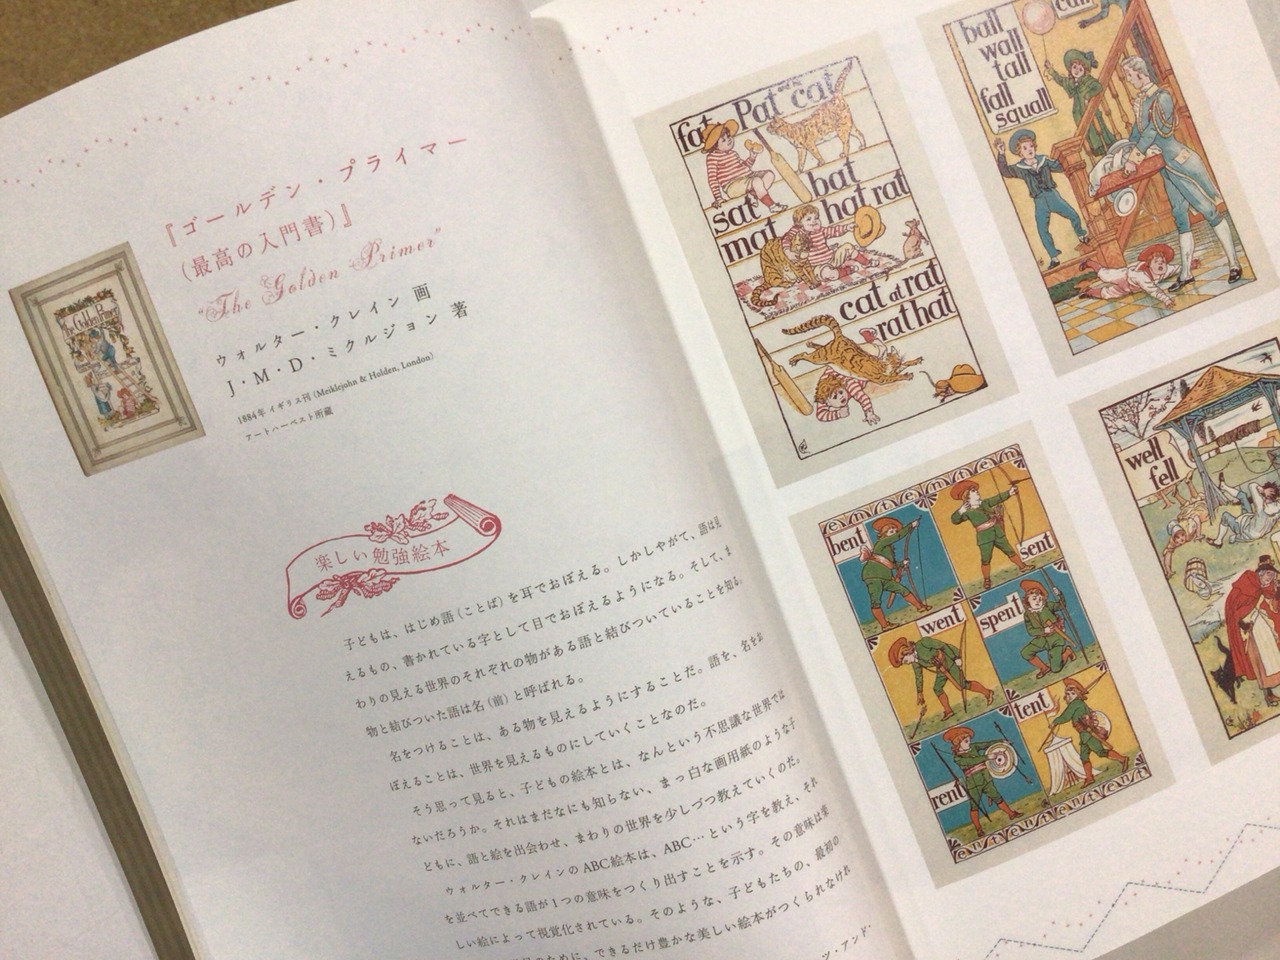 『ゴールデン・プライマー
(最高の入門書)』
"The Golden Primer"
ウォルター・クレイン 画
J・M・D・ミクルジョン 著
1884年 イギリス刊 (Meiklejohn & Holden, London)
アートハーベスト所蔵
The Golden Primer
楽しい勉強絵本
子どもは、はじめ語(ことば)を耳でおぼえる。しかしやがて、語は見
えるもの、書かれている字として目でおぼえるようになる。そして、ま
わりの見える世界のそれぞれの物がある語と結びついていることを知る。
物と結びついた語は名(前)と呼ばれる。
名をつけることは、ある物を見えるようにすることだ。語を、名をお
ぼえることは、世界を見えるものにしていくことなのだ。
そう思って見ると、子どもの絵本とは、なんという不思議な世界では
ないだろうか。それはまだなにも知らない、まっ白な画用紙のような子
どもに、語と絵を出会わせ、まわりの世界を少しづつ教えていくのだ。
ウォルター・クレインのABC絵本は、ABC…という字を教え、それ
を並べてできる語が1つの意味をつくり出すことを示す。その意味は楽
しい絵によって視覚化されている。そのような、子どもたちの、最初の
のために、できるだけ豊かな美しい絵本がつくられなけれ
ツ・アンド・
fat Pat and cat
sat bat
mat hat rat
cat at rat
rat hat
call
ball
wall
tall
fall
squall
bent
sent
went
spent
rent
tent
well
fell